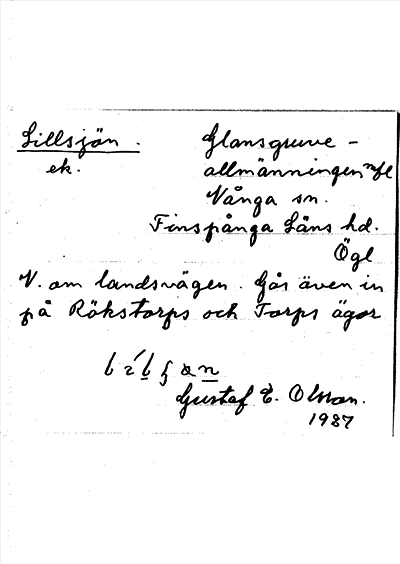 Lillsjön.
ek.
Glansgruve-
allmänningen mfl
Vånga sn.
Finspånga Läns hd.
Ögl
V. om landsvägen. Går även in
på Rökstorps och Torps ägor
Gustaf E. Olsson.
1937